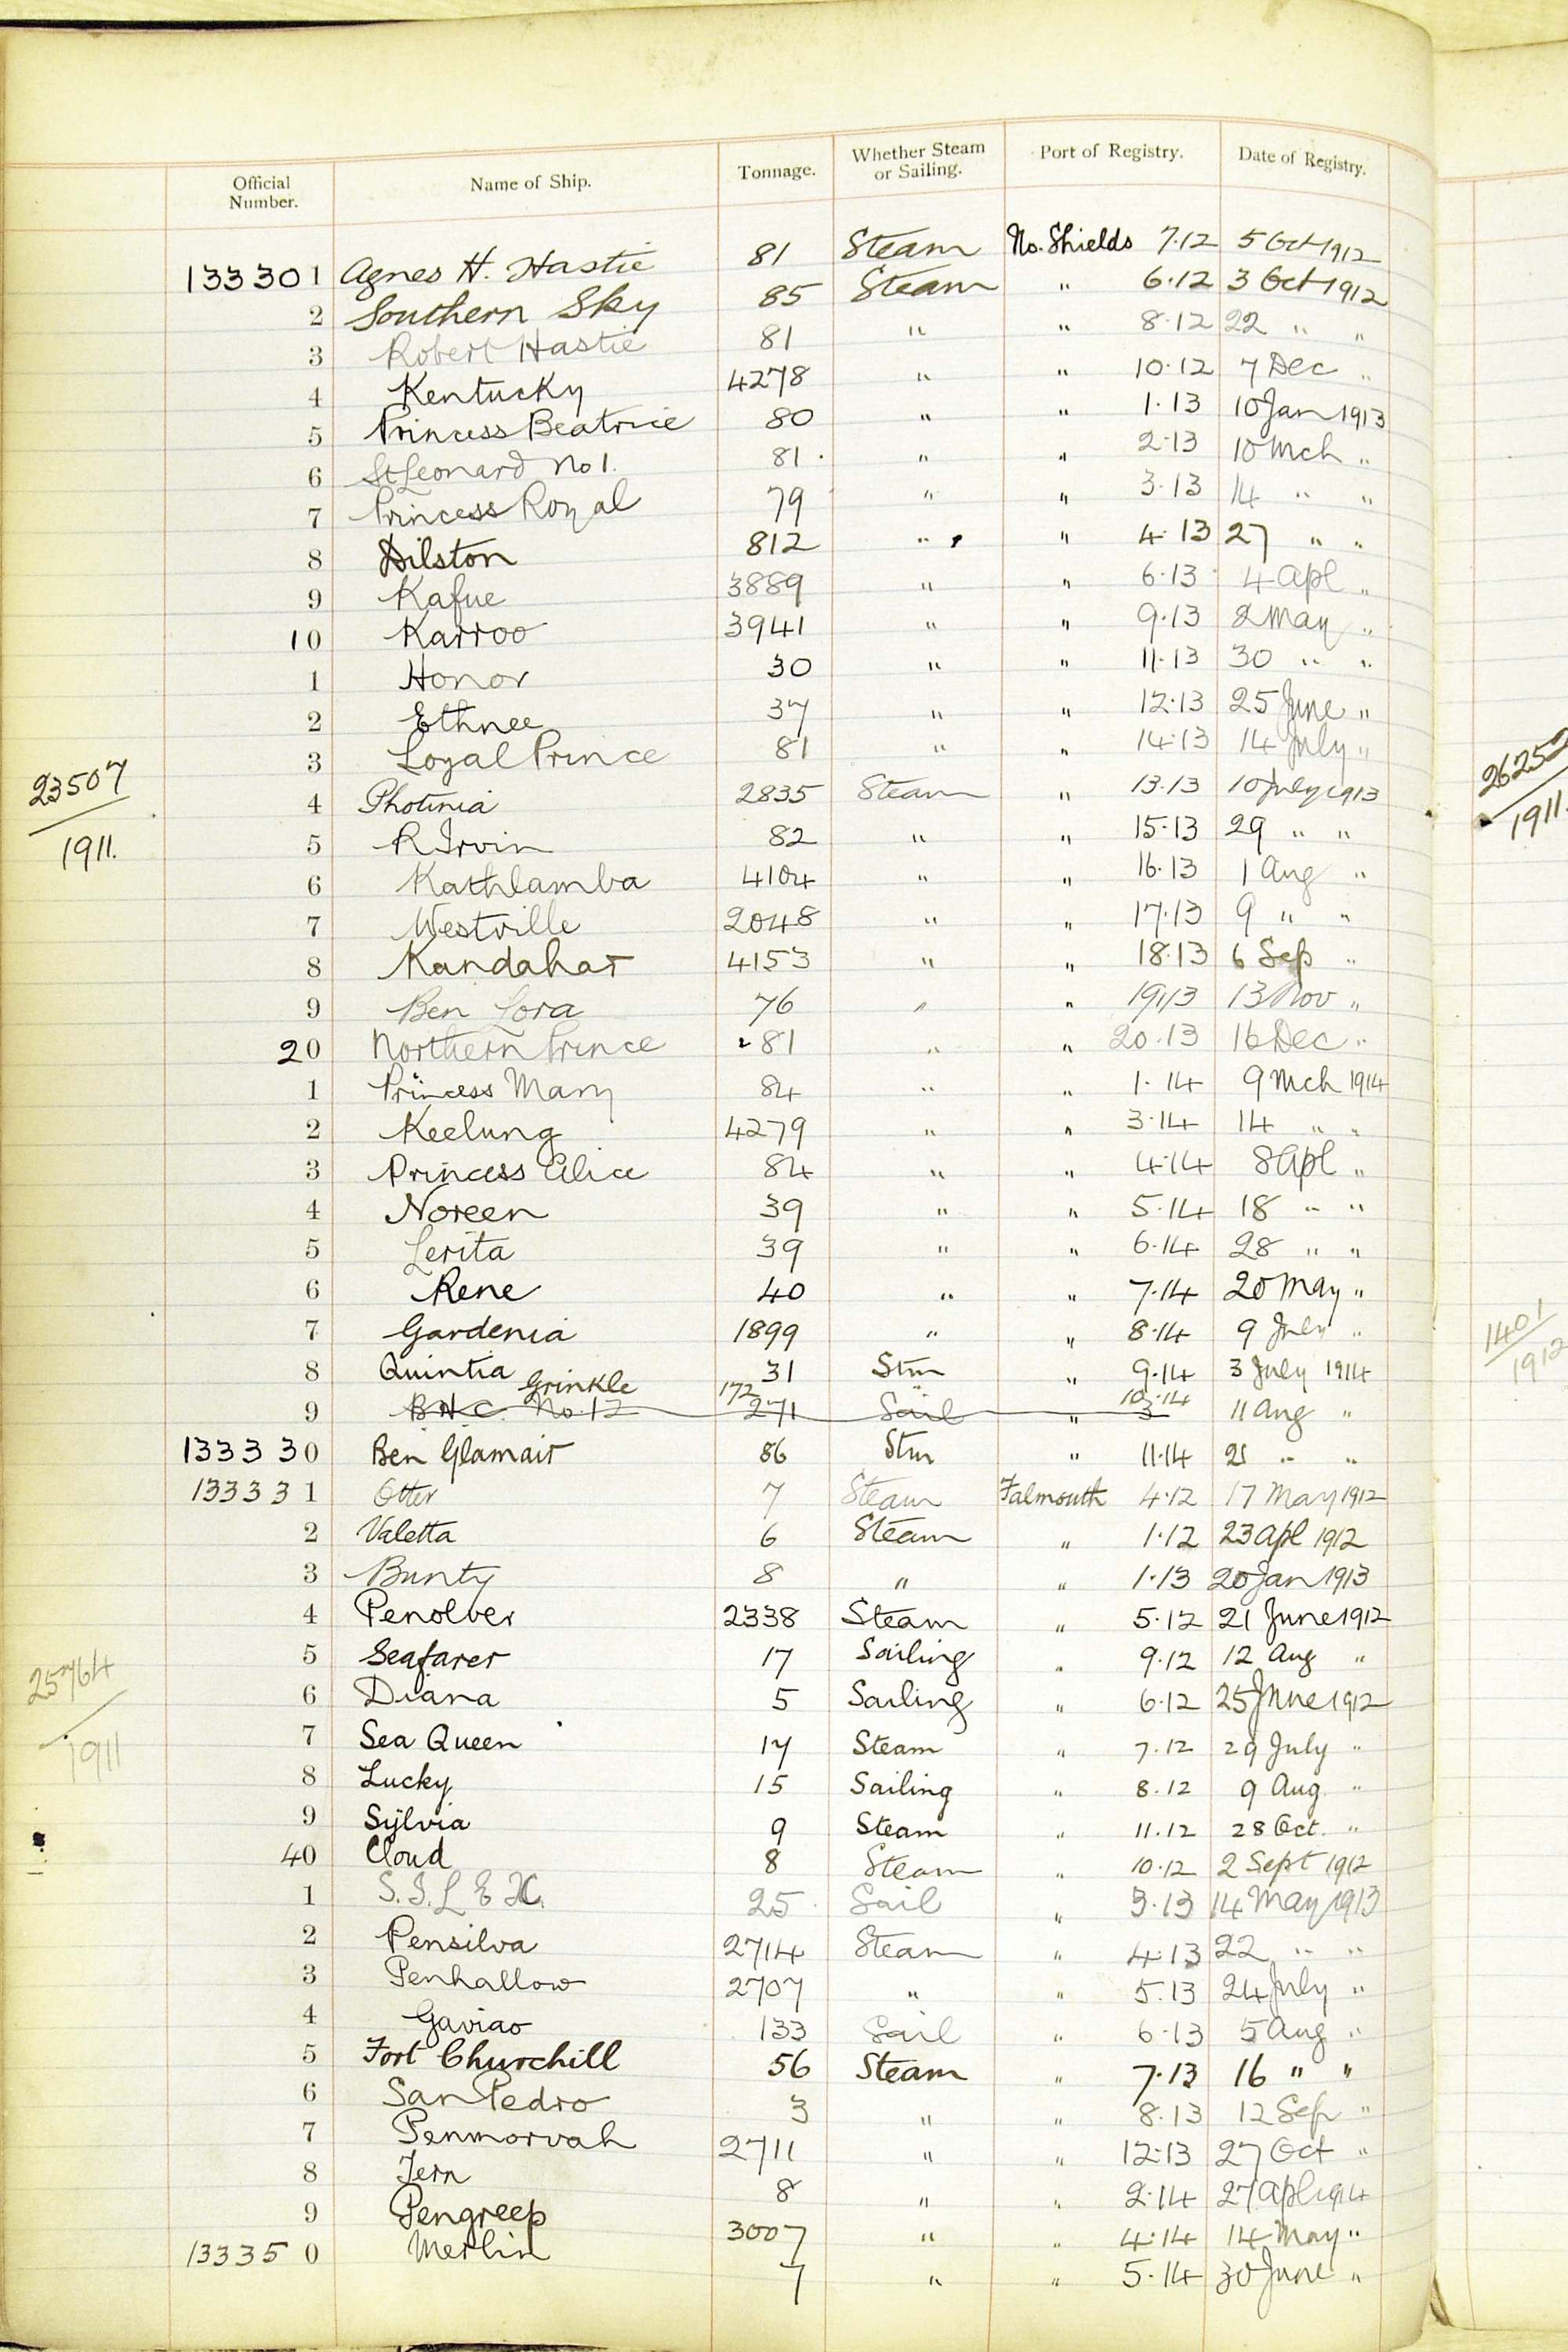 Official Number. Name of Ship. Tonnage. Whether Steam or Sailing. Port of Registry. Date of Registry.
133301 Agnes H. Hastie 81 Steam No. Shields 7.12 5 Oct 1912
2 Southern Sky 85 Steam " 6.12 3 Oct 1912
3 Robert Hastie 81 " " 8.12 22 " "
4 Kentucky 4278 " " 10.12 7 Dec "
5 Princess Beatrice 80 " " 1.13 10 Jan 1913
6 St Leonard No 1. 81 " " 2.13 10 Mch "
7 Princess Royal 79 " " 3.13 14 " "
8 Dilston 812 " " 4.13 27 " "
9 Kafue 3889 " " 6.13 4 Apl "
10 Karroo 3941 " " 9.13 2 May "
1 Honor 30 " " 11.13 30 " "
2 Ethnee 37 " " 12.13 25 June "
3 Loyal Prince 81 " " 14.13 14 July "
23507
1911.
26252
1911.
4 Photinia 2835 Steam " 13.13 10 July 1913
5 R Irvin 82 " " 15.13 29 " "
6 Kathlamba 4104 " " 16.13 1 Aug "
7 Westville 2048 " " 17.13 9 " "
8 Kandahar 4153 " " 18.13 6 Sep "
9 Ben Lora 76 " " 19/13 13 Nov "
20 Northern Prince 81 " " 20.13 16 Dec "
1 Princess Mary 84 " " 1.14 9 Mch 1914
2 Keelung 4279 " " 3.14 14 " "
3 Princess Alice 84 " " 4.14 8 Apl "
4 Noreen 39 " " 5.14 18 " "
5 Lerita 39 " " 6.14 28 " "
6 Rene 40 " " 7.14 20 May "
7 Gardenia 1899 " " 8.14 9 July "
1401
1912
8 Quintia 31 Stm " 9.14 3 July 1914
Grinkle 172 " 10.14
9 B.H.C. No. 12 271 Sail " 3 11 Aug "
133330 Ben Glamair 86 Stm " 11.14 21 " "
133331 Otter 7 Steam Falmouth 4.12 17 May 1912
2 Valetta 6 Steam " 1.12 23 Apl 1912
3 Bunty 8 " " 1.13 20 Jan 1913
4 Penolver 2338 Steam " 5.12 21 June 1912
5 Seafarer 17 Sailing " 9.12 12 Aug "
25764
1911
6 Diana 5 Sailing " 6.12 25 June 1912
7 Sea Queen 17 Steam " 7.12 29 July "
8 Lucky 15 Sailing " 8.12 9 Aug. "
9 Sylvia 9 Steam " 11.12 28 Oct. "
40 Cloud 8 Steam " 10.12 2 Sept 1912
1 S.I.L.E.X. 25 Sail " 3.13 14 May 1913
2 Pensilva 2714 Steam " 4.13 22 " "
3 Penhallow 2707 " " 5.13 24 July "
4 Gaviao 133 Sail " 6.13 5 Aug "
5 Fort Churchill 56 Steam " 7.13 16 " "
6 San Pedro 3 " " 8.13 12 Sep "
7 Penmorvah 2711 " " 12.13 27 Oct "
8 Tern 8 " " 2.14 27 Apl 1914
9 Pengreep 3007 " " 4.14 14 May "
133350 Merlin 7 " " 5.14 30 June "